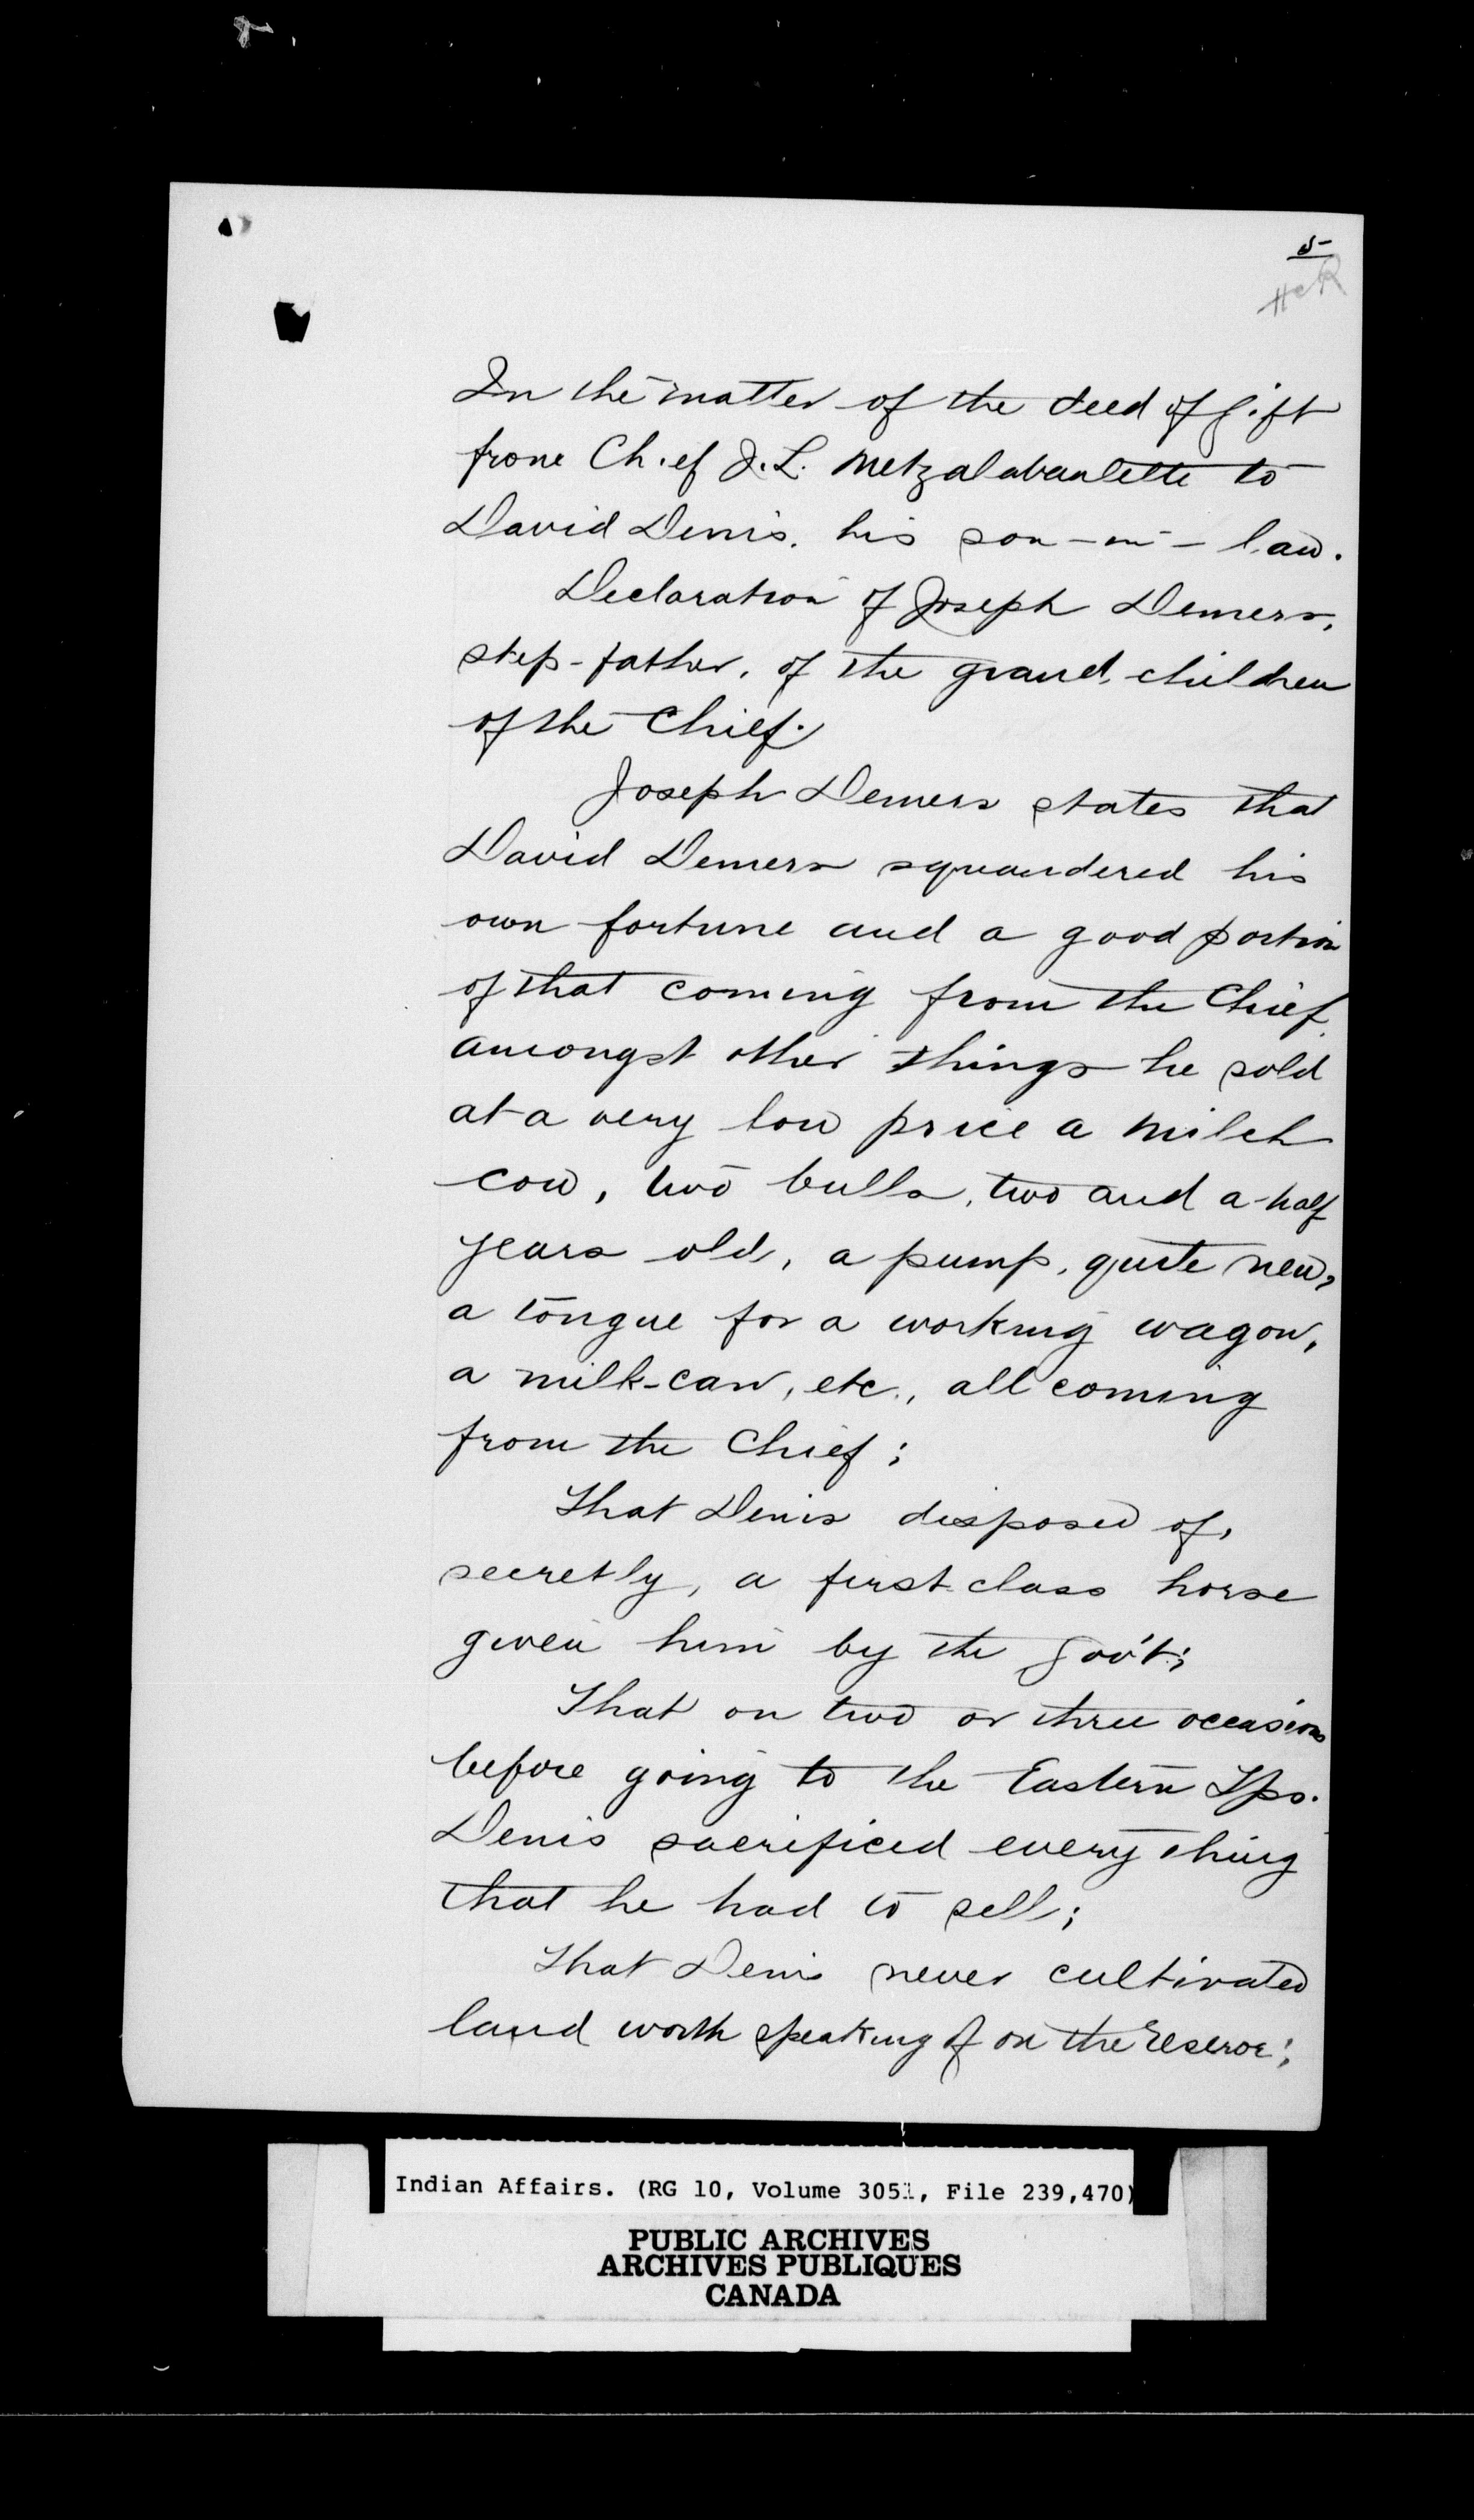 5
HCR
In the matter of the deed of gift
from Chief J. L. Metzalabanlette to
David Denis, his son-in-law.
Declaration of Joseph Demers,
step-father, of the grand children
of the Chief.
Joseph Demers states that
David Demers squandered his
own fortune and a good portion
of that coming from the Chief
amongst other things he sold
at a very low price a milch
cow, two bulls, two and a-half
years old, a pump, quite new,
a tongue for a working wagon,
a milk-can, etc., all coming
from the Chief;
That Denis disposed of,
secretly, a first-class horse
given him by the Gov't;
That on two or three occasions
before going to the Eastern Tps.
Denis sacrificed every thing
that he had to sell;
That Denis never cultivated
land worth speaking of on the reserve;
Indian Affairs. (RG 10, Volume 3051, File 239,470)
PUBLIC ARCHIVES
ARCHIVES PUBLIQUES
CANADA